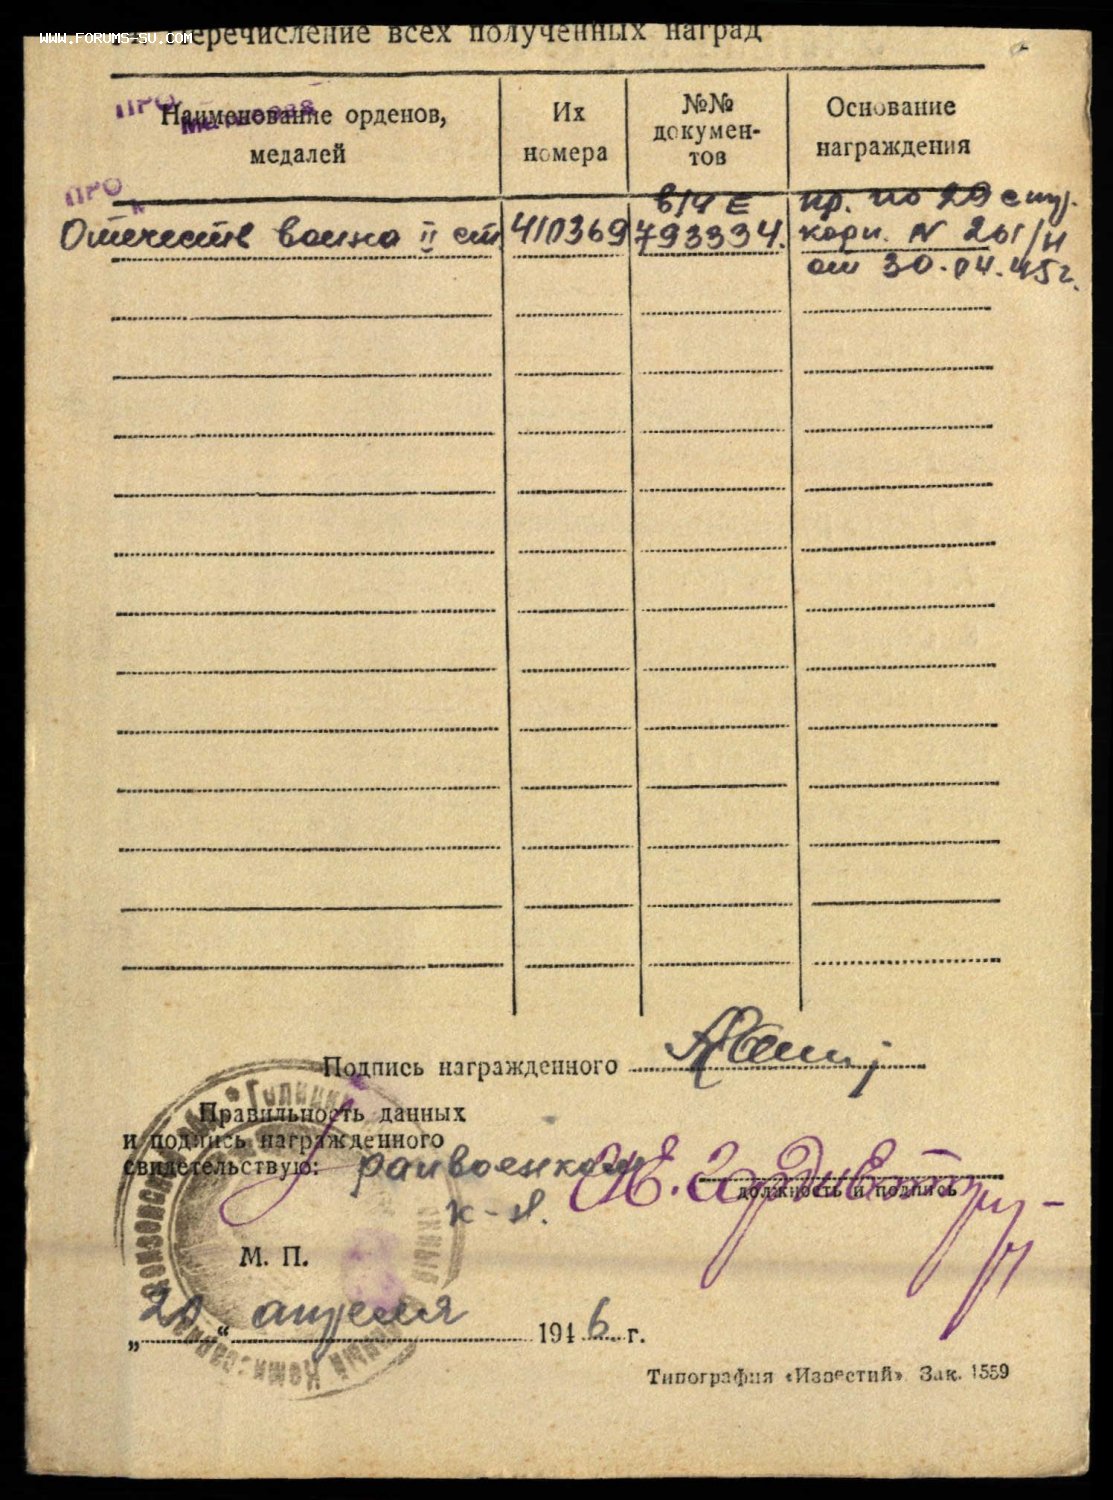 WWW.FORUMS-SU.COM
перечисление всех полученных наград
ПРО
Наименование орденов, медалей
Их номера
№№ докумен-тов
Основание награждения
ПРО
Отечеств война II ст
410369
в/ч Е
793394.
пр. по 29 стр.
корп. N 201/н
от 30.04.45г.
Подпись награжденного
Правильность данных
и подпись награжденного
свидетельствую:
райвоенком
должность и подпись
к-н.
М. П.
„20“ апреля 1946 г.
Типография «Известий» Зак. 1559